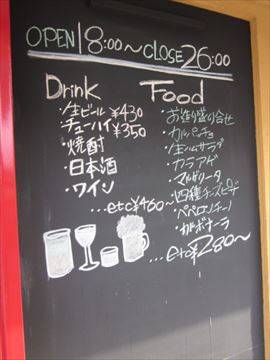 OPEN 18:00〜CLOSE 26:00
Drink
・生ビール ¥430
・チューハイ ¥350
・焼酎
・日本酒
・ワイン
...etc ¥460〜
Food
・お造り盛り合せ
・カルパッチョ
・生ハムサラダ
・カラアゲ
・マルゲリータ
・四種チーズピザ
・ペペロンチーノ
・カルボナーラ
...etc ¥280〜